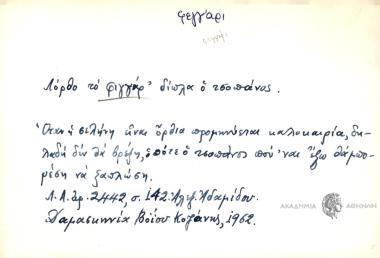 φεγγάρι
Λόρθο τὸ φιγγάρ' δίπλα ὁ τσοπάνος.
Ὅταν ἡ σελήνη εἶναι ὄρθια προμηνύεται καλοκαιρία, δη-
λαδὴ δὲν θὰ βρέξη, ὁπότε ὁ τσοπάνος ποὺ 'ναι ἔξω θὰ μπο-
ρέση νὰ ξαπλώση.
Λ.Α. ἀρ. 2442, σ. 142. Ἀλεξ. Ἀδαμίδου.
Δαμασκηνέα Βοΐου Κοζάνης, 1962.
ΑΚΑΔΗΜΙΑ ΑΘΗΝΩΝ